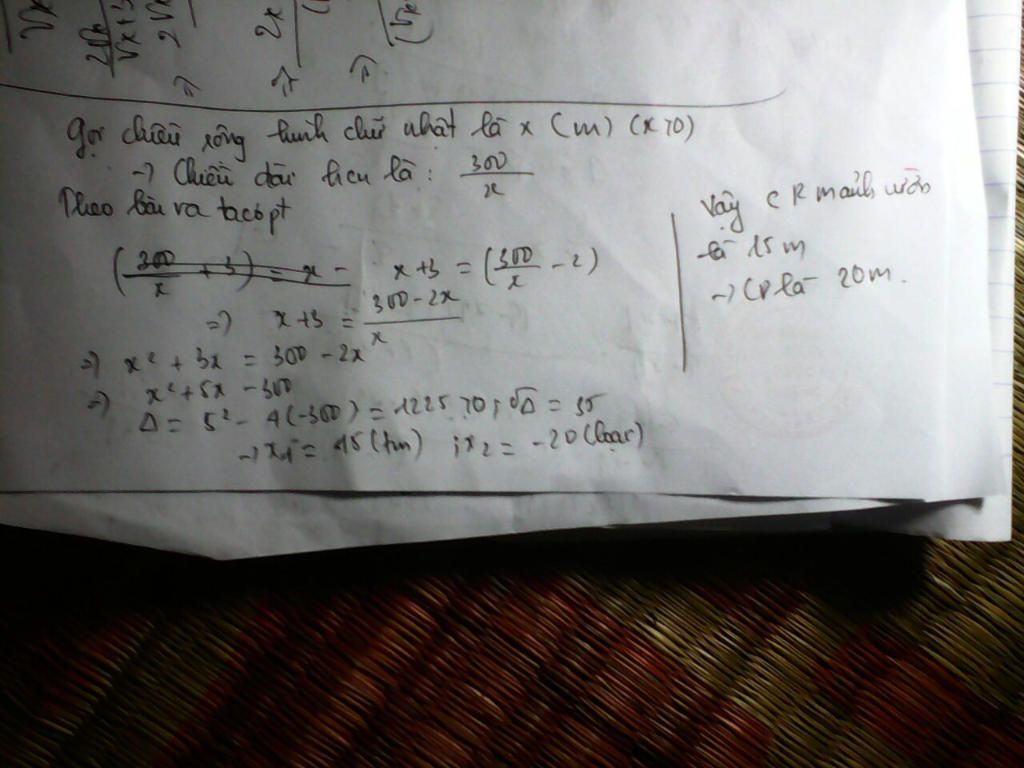 Gọi chiều rộng hình chữ nhật là x (m) (x>0)
→ Chiều dài là : 300/x
Theo bài ra ta có pt
(300/x + 3) = x - x+3 = (300/x - 2)
=> x+3 = (300-2x)/x
=> x² + 3x = 300 - 2x
=> x² + 5x - 300
Δ = 5² - 4(-300) = 1225 >0 ; √Δ = 35
→ x₁ = 15 (tm) ; x₂ = -20 (loại)
Vậy CR mảnh vườn
là 15 m
→ CD là 20 m.